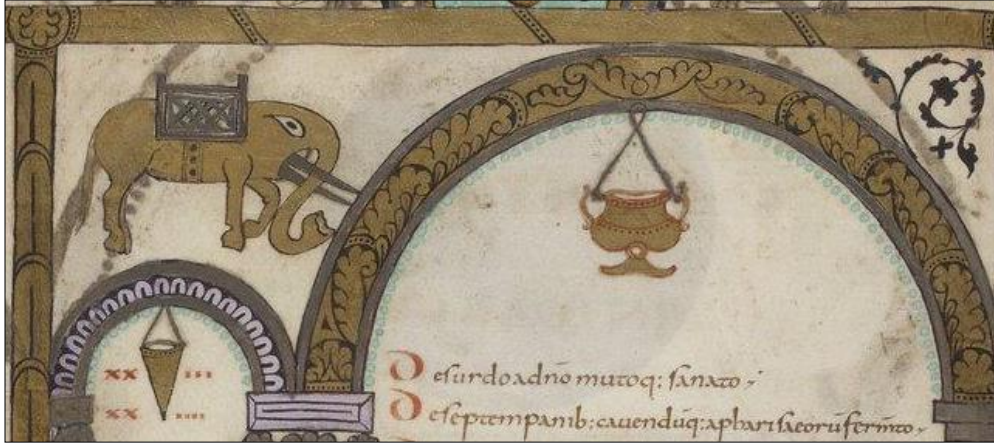 XX III
XX IIII
De surdo a dn̄o mutoq: sanato ;
De septem panib: cauendūq: a pharisaeorū fermto ;